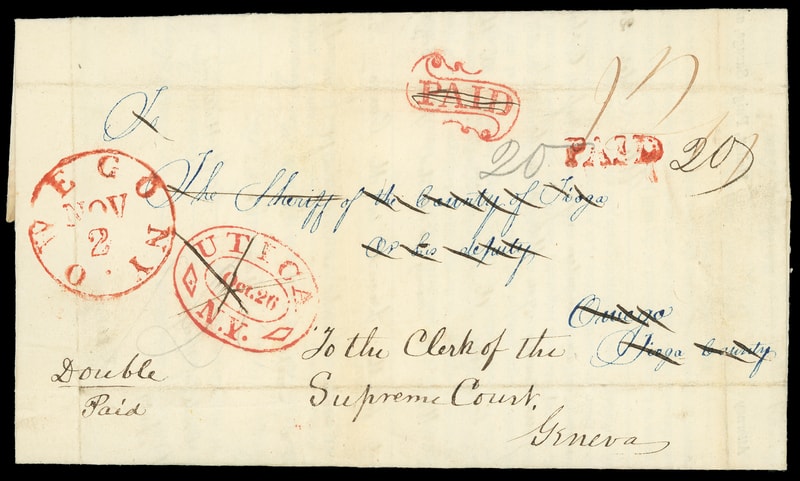 PAID
To
20 PAID 20
The Sheriff of the County of Tioga
Or his deputy
OWEGO NY
NOV
2
UTICA
Oct. 26
N.Y.
Owego
Tioga County
To the Clerk of the
Supreme Court.
Geneva
Double
Paid